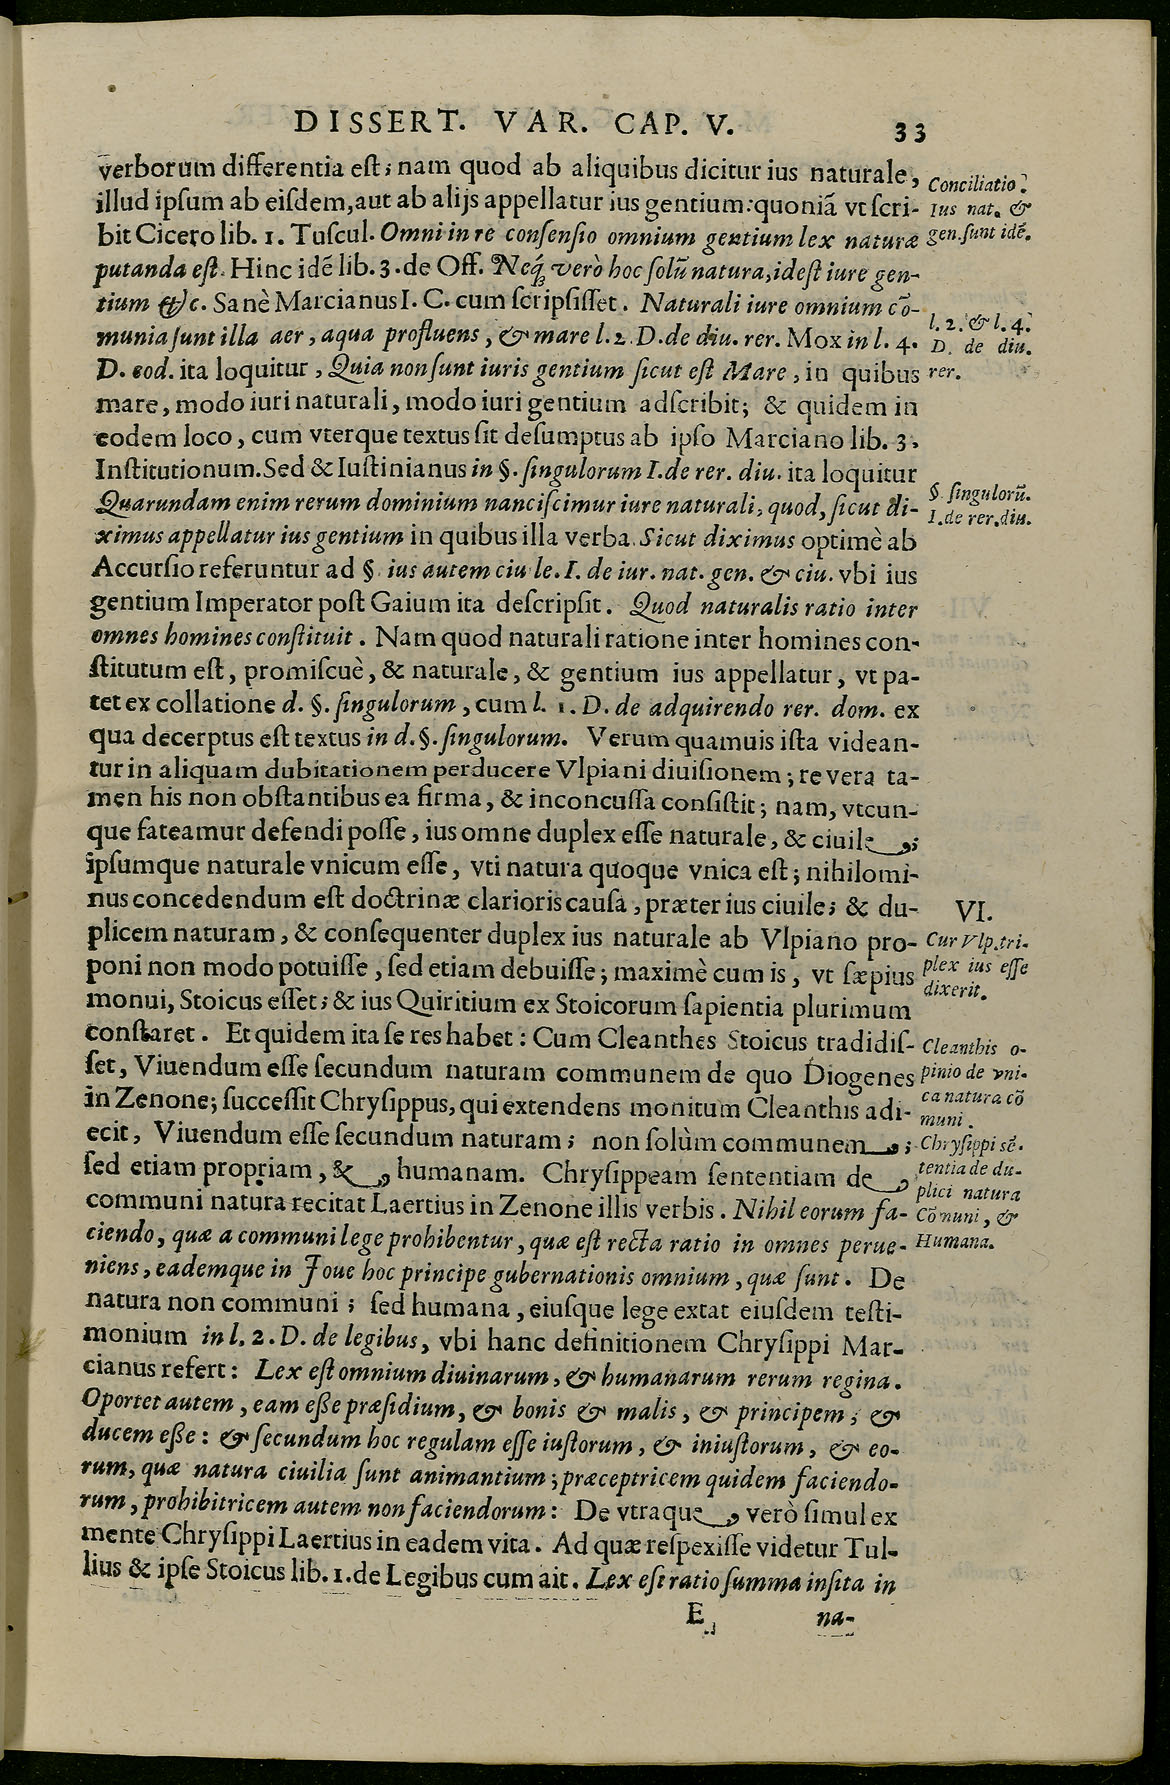 DISSERT. VAR. CAP. V. 33
verborum differentia eſt; nam quod ab aliquibus dicitur ius naturale,
illud ipſum ab eiſdem, aut ab alijs appellatur ius gentium: quoniã vt ſcri-
bit Cicero lib. 1. Tuſcul. Omni in re conſenſio omnium gentium lex naturæ
putanda eſt. Hinc idẽ lib. 3. de Off. Neq́; verò hoc ſolũ natura, ideſt iure gen-
tium &c. Sanè Marcianus I. C. cum ſcripſiſſet. Naturali iure omnium cõ-
munia ſunt illa aer, aqua profluens, & mare l. 2. D. de diu. rer. Mox in l. 4.
D. eod. ita loquitur, Quia non ſunt iuris gentium ſicut eſt Mare, in quibus
mare, modo iuri naturali, modo iuri gentium adſcribit; & quidem in
eodem loco, cum vterque textus ſit deſumptus ab ipſo Marciano lib. 3.
Inſtitutionum. Sed & Iuſtinianus in §. ſingulorum I. de rer. diu. ita loquitur
Quarundam enim rerum dominium nanciſcimur iure naturali, quod, ſicut di-
ximus appellatur ius gentium in quibus illa verba. Sicut diximus optimè ab
Accurſio referuntur ad § ius autem ciuile. I. de iur. nat. gen. & ciu. vbi ius
gentium Imperator poſt Gaium ita deſcripſit. Quod naturalis ratio inter
omnes homines conſtituit. Nam quod naturali ratione inter homines con-
ſtitutum eſt, promiſcuè, & naturale, & gentium ius appellatur, vt pa-
tet ex collatione d. §. ſingulorum, cum l. 1. D. de adquirendo rer. dom. ex
qua decerptus eſt textus in d. §. ſingulorum. Verum quamuis iſta videan-
tur in aliquam dubitationem perducere Vlpiani diuiſionem; re vera ta-
men his non obſtantibus ea firma, & inconcuſſa conſiſtit; nam, vtcun-
que fateamur defendi poſſe, ius omne duplex eſſe naturale, & ciuile;
ipſumque naturale vnicum eſſe, vti natura quoque vnica eſt; nihilomi-
nus concedendum eſt doctrinæ clarioris cauſa, præter ius ciuile; & du-
plicem naturam, & conſequenter duplex ius naturale ab Vlpiano pro-
poni non modo potuiſſe, ſed etiam debuiſſe; maximè cum is, vt ſæpius
monui, Stoicus eſſet; & ius Quiritium ex Stoicorum ſapientia plurimum
conſtaret. Et quidem ita ſe res habet: Cum Cleanthes Stoicus tradidiſ-
ſet, Viuendum eſſe ſecundum naturam communem de quo Diogenes
in Zenone; ſucceſſit Chryſippus, qui extendens monitum Cleanthis adi-
ecit, Viuendum eſſe ſecundum naturam; non ſolùm communem;
ſed etiam propriam, & humanam. Chryſippeam ſententiam de
communi natura recitat Laertius in Zenone illis verbis. Nihil eorum fa-
ciendo, quæ a communi lege prohibentur, quæ eſt recta ratio in omnes perue-
niens, eademque in Ioue hoc principe gubernationis omnium, quæ ſunt. De
natura non communi; ſed humana, eiuſque lege extat eiuſdem teſti-
monium in l. 2. D. de legibus, vbi hanc definitionem Chryſippi Mar-
cianus refert: Lex eſt omnium diuinarum, & humanarum rerum regina.
Oportet autem, eam eße præſidium, & bonis & malis, & principem, &
ducem eße: & ſecundum hoc regulam eſſe iuſtorum, & iniuſtorum, & eo-
rum, quæ natura ciuilia ſunt animantium; præceptricem quidem faciendo-
rum, prohibitricem autem non faciendorum: De vtraque verò ſimul ex
mente Chryſippi Laertius in eadem vita. Ad quæ reſpexiſſe videtur Tul-
lius & ipſe Stoicus lib. 1. de Legibus cum ait. Lex eſt ratio ſumma inſita in
E na-
Conciliatio.
Ius nat. &
gen. ſunt idẽ.
l. 2. & l. 4.
D. de diu.
rer.
§. ſingulorũ.
I. de rer. diu.
VI.
Cur Vlp. tri-
plex ius eſſe
dixerit.
Cleanthis o-
pinio de vni-
ca natura cõ
muni.
Chryſippi sẽ-
tentia de du-
plici natura
Cõmuni, &
Humana.